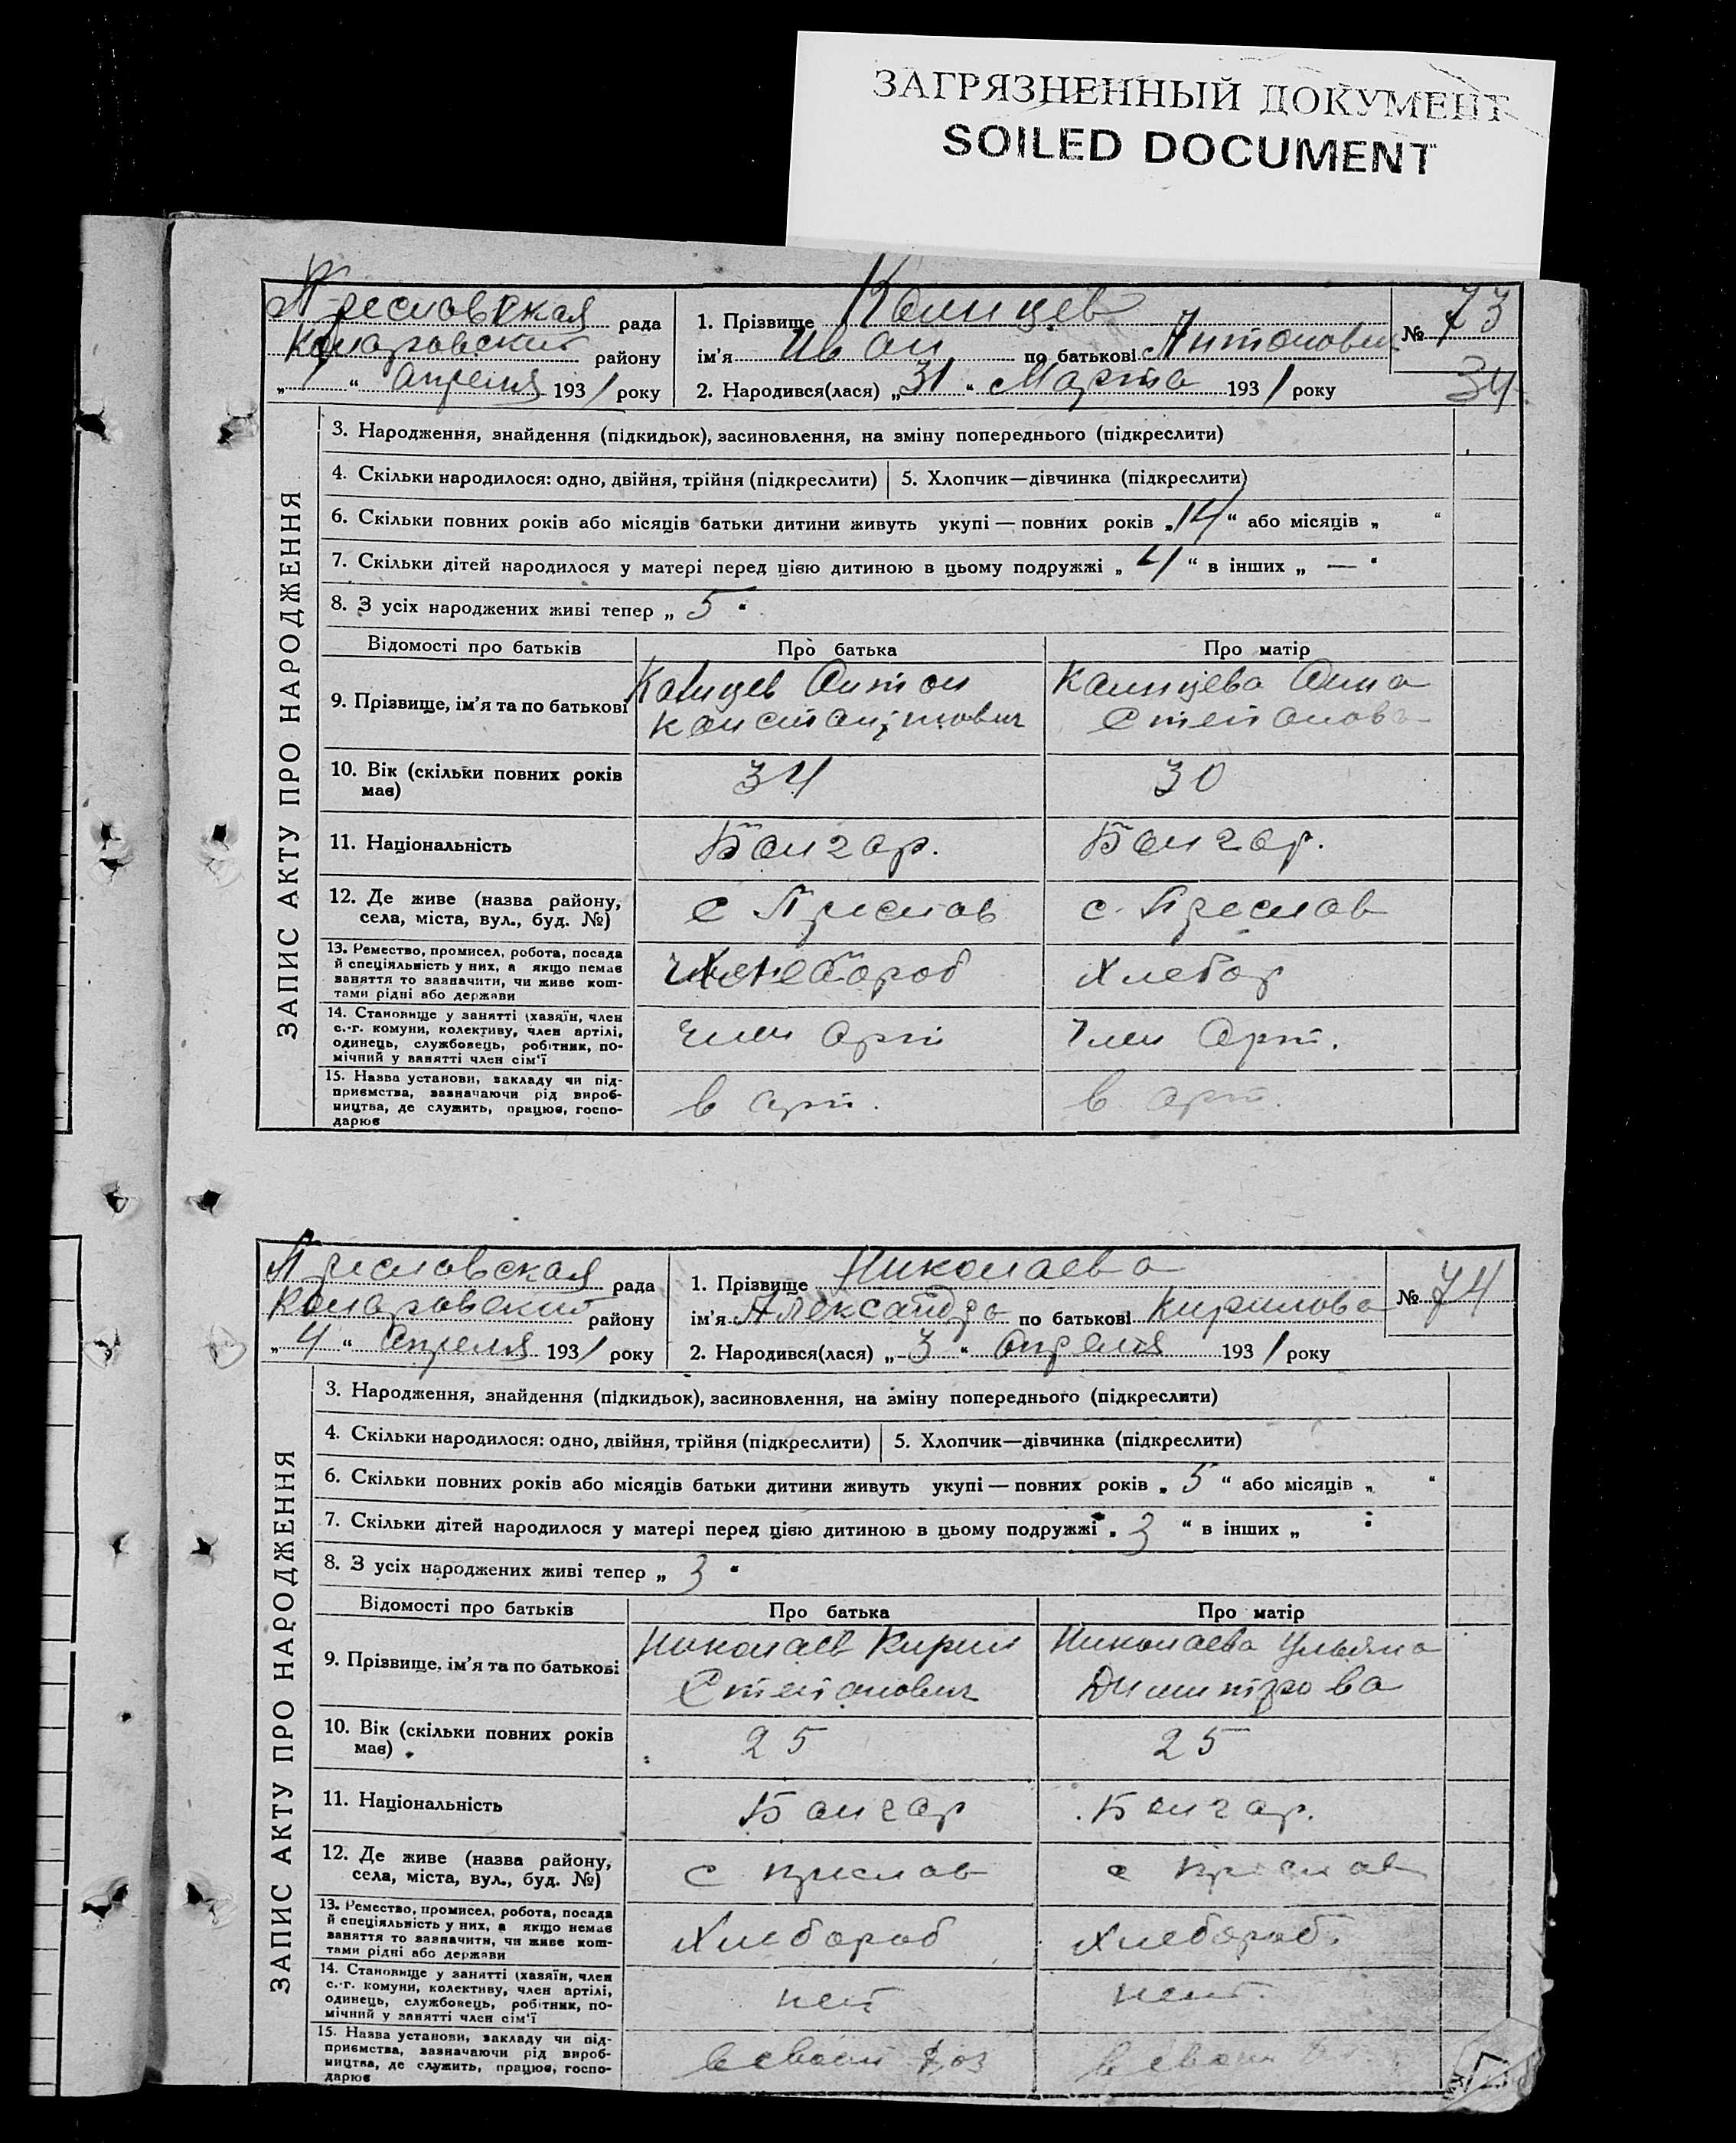 ЗАГРЯЗНЕННЫЙ ДОКУМЕНТ
SOILED DOCUMENT
Преславская рада
района району
„ “ Апреля 1931 року
1. Прізвище Калицев
ім’я Иван по батькові Антонович
2. Народився(лася) „31“ Марта 1931 року
№ 73
34
ЗАПИС АКТУ ПРО НАРОДЖЕННЯ
3. Народження, знайдення (підкидьок), засиновлення, на зміну попереднього (підкреслити)
4. Скільки народилося: одно, двійня, трійня (підкреслити) 5. Хлопчик—дівчинка (підкреслити)
6. Скільки повних років або місяців батьки дитини живуть укупі — повних років „14“ або місяців „ “
7. Скільки дітей народилося у матері перед цією дитиною в цьому подружжі „4“ в інших „ — “
8. З усіх народжених живі тепер „ 5 “
Відомості про батьків Про батька Про матір
9. Прізвище, ім’я та по батькові
Калицев Антон
Константинович
Калицева Анна
Степанова
10. Вік (скільки повних років
має)
34
30
11. Національність
Болгар.
Болгар.
12. Де живе (назва району,
села, міста, вул., буд. №)
с Преслав
с. Преслав
13. Ремество, промисел, робота, посада
й спеціяльність у них, а якщо немає
заняття то зазначити, чи живе кош-
тами рідні або держави
Хлебороб
Хлебор
14. Становище у занятті (хазяїн, член
с.-г. комуни, колективу, член артілі,
одинець, службовець, робітник, по-
мічний у занятті член сім’ї
член арт
член арт.
15. Назва установи, закладу чи під-
приємства, зазначаючи рід вироб-
ництва, де служить, працює, госпо-
дарює
в арт.
в арт.
Преславская рада
району
„ 4 “ Апреля 1931 року
1. Прізвище Николаева
ім’я Александра по батькові Кирилова
2. Народився(лася) „ 3 “ Апреля 1931 року
№ 74
ЗАПИС АКТУ ПРО НАРОДЖЕННЯ
3. Народження, знайдення (підкидьок), засиновлення, на зміну попереднього (підкреслити)
4. Скільки народилося: одно, двійня, трійня (підкреслити) 5. Хлопчик—дівчинка (підкреслити)
6. Скільки повних років або місяців батьки дитини живуть укупі — повних років „ 5 “ або місяців „ “
7. Скільки дітей народилося у матері перед цією дитиною в цьому подружжі „ 3 “ в інших „
8. З усіх народжених живі тепер „ 3 “
Відомості про батьків Про батька Про матір
9. Прізвище, ім’я та по батькові
Николаев Кирил
Степанович
Николаева Ульяна
Димитрова
10. Вік (скільки повних років
має)
25
25
11. Національність
Болгар
Болгар.
12. Де живе (назва району,
села, міста, вул., буд. №)
с Преслав
с Преслав
13. Ремество, промисел, робота, посада
й спеціяльність у них, а якщо немає
заняття то зазначити, чи живе кош-
тами рідні або держави
Хлебороб
Хлебороб.
14. Становище у занятті (хазяїн, член
с.-г. комуни, колективу, член артілі,
одинець, службовець, робітник, по-
мічний у занятті член сім’ї
нет
нет.
15. Назва установи, закладу чи під-
приємства, зазначаючи рід вироб-
ництва, де служить, працює, госпо-
дарює
в своем хоз
в своем